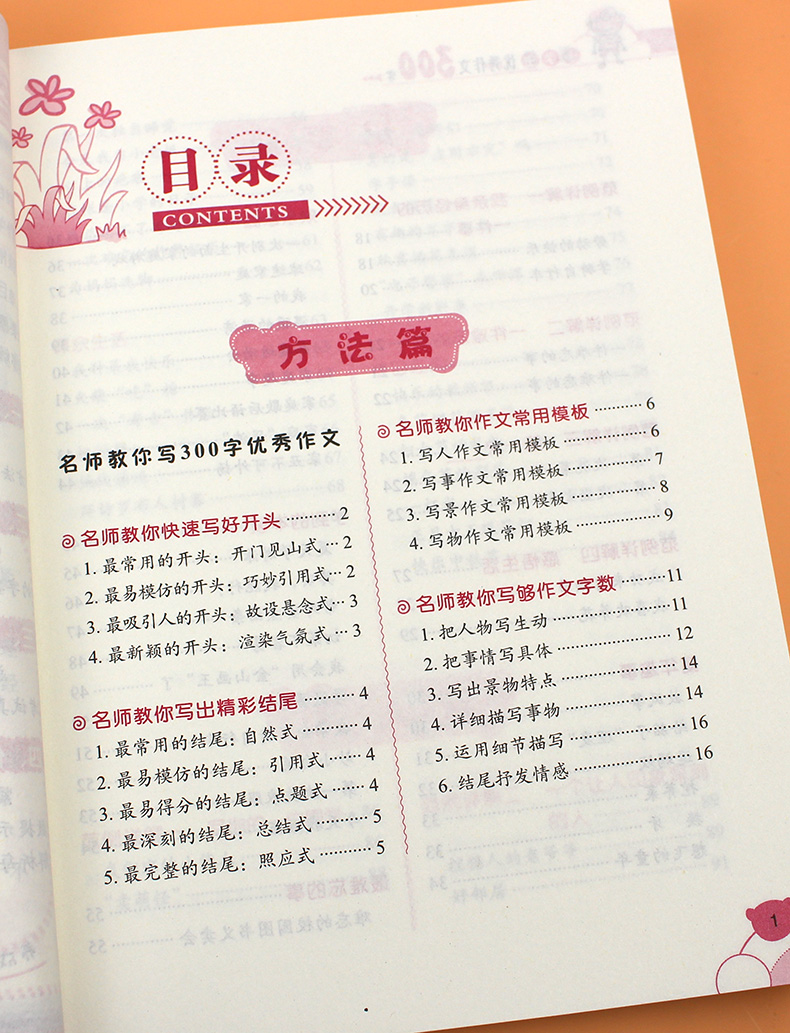 目录
CONTENTS
方法篇
名师教你写300字优秀作文
名师教你快速写好开头 ………… 2
1. 最常用的开头：开门见山式 … 2
2. 最易模仿的开头：巧妙引用式 … 2
3. 最吸引人的开头：故设悬念式 … 3
4. 最新颖的开头：渲染气氛式 … 3
名师教你写出精彩结尾 ……… 4
1. 最常用的结尾：自然式 ……… 4
2. 最易模仿的结尾：引用式 …… 4
3. 最易得分的结尾：点题式 …… 4
4. 最深刻的结尾：总结式 ……… 5
5. 最完整的结尾：照应式 ……… 5
名师教你作文常用模板 ………… 6
1. 写人作文常用模板 …………… 6
2. 写事作文常用模板 …………… 7
3. 写景作文常用模板 …………… 8
4. 写物作文常用模板 …………… 9
名师教你写够作文字数 ……… 11
1. 把人物写生动 ……………… 11
2. 把事情写具体 ……………… 12
3. 写出景物特点 ……………… 14
4. 详细描写事物 ……………… 14
5. 运用细节描写 ……………… 16
6. 结尾抒发情感 ……………… 16
1